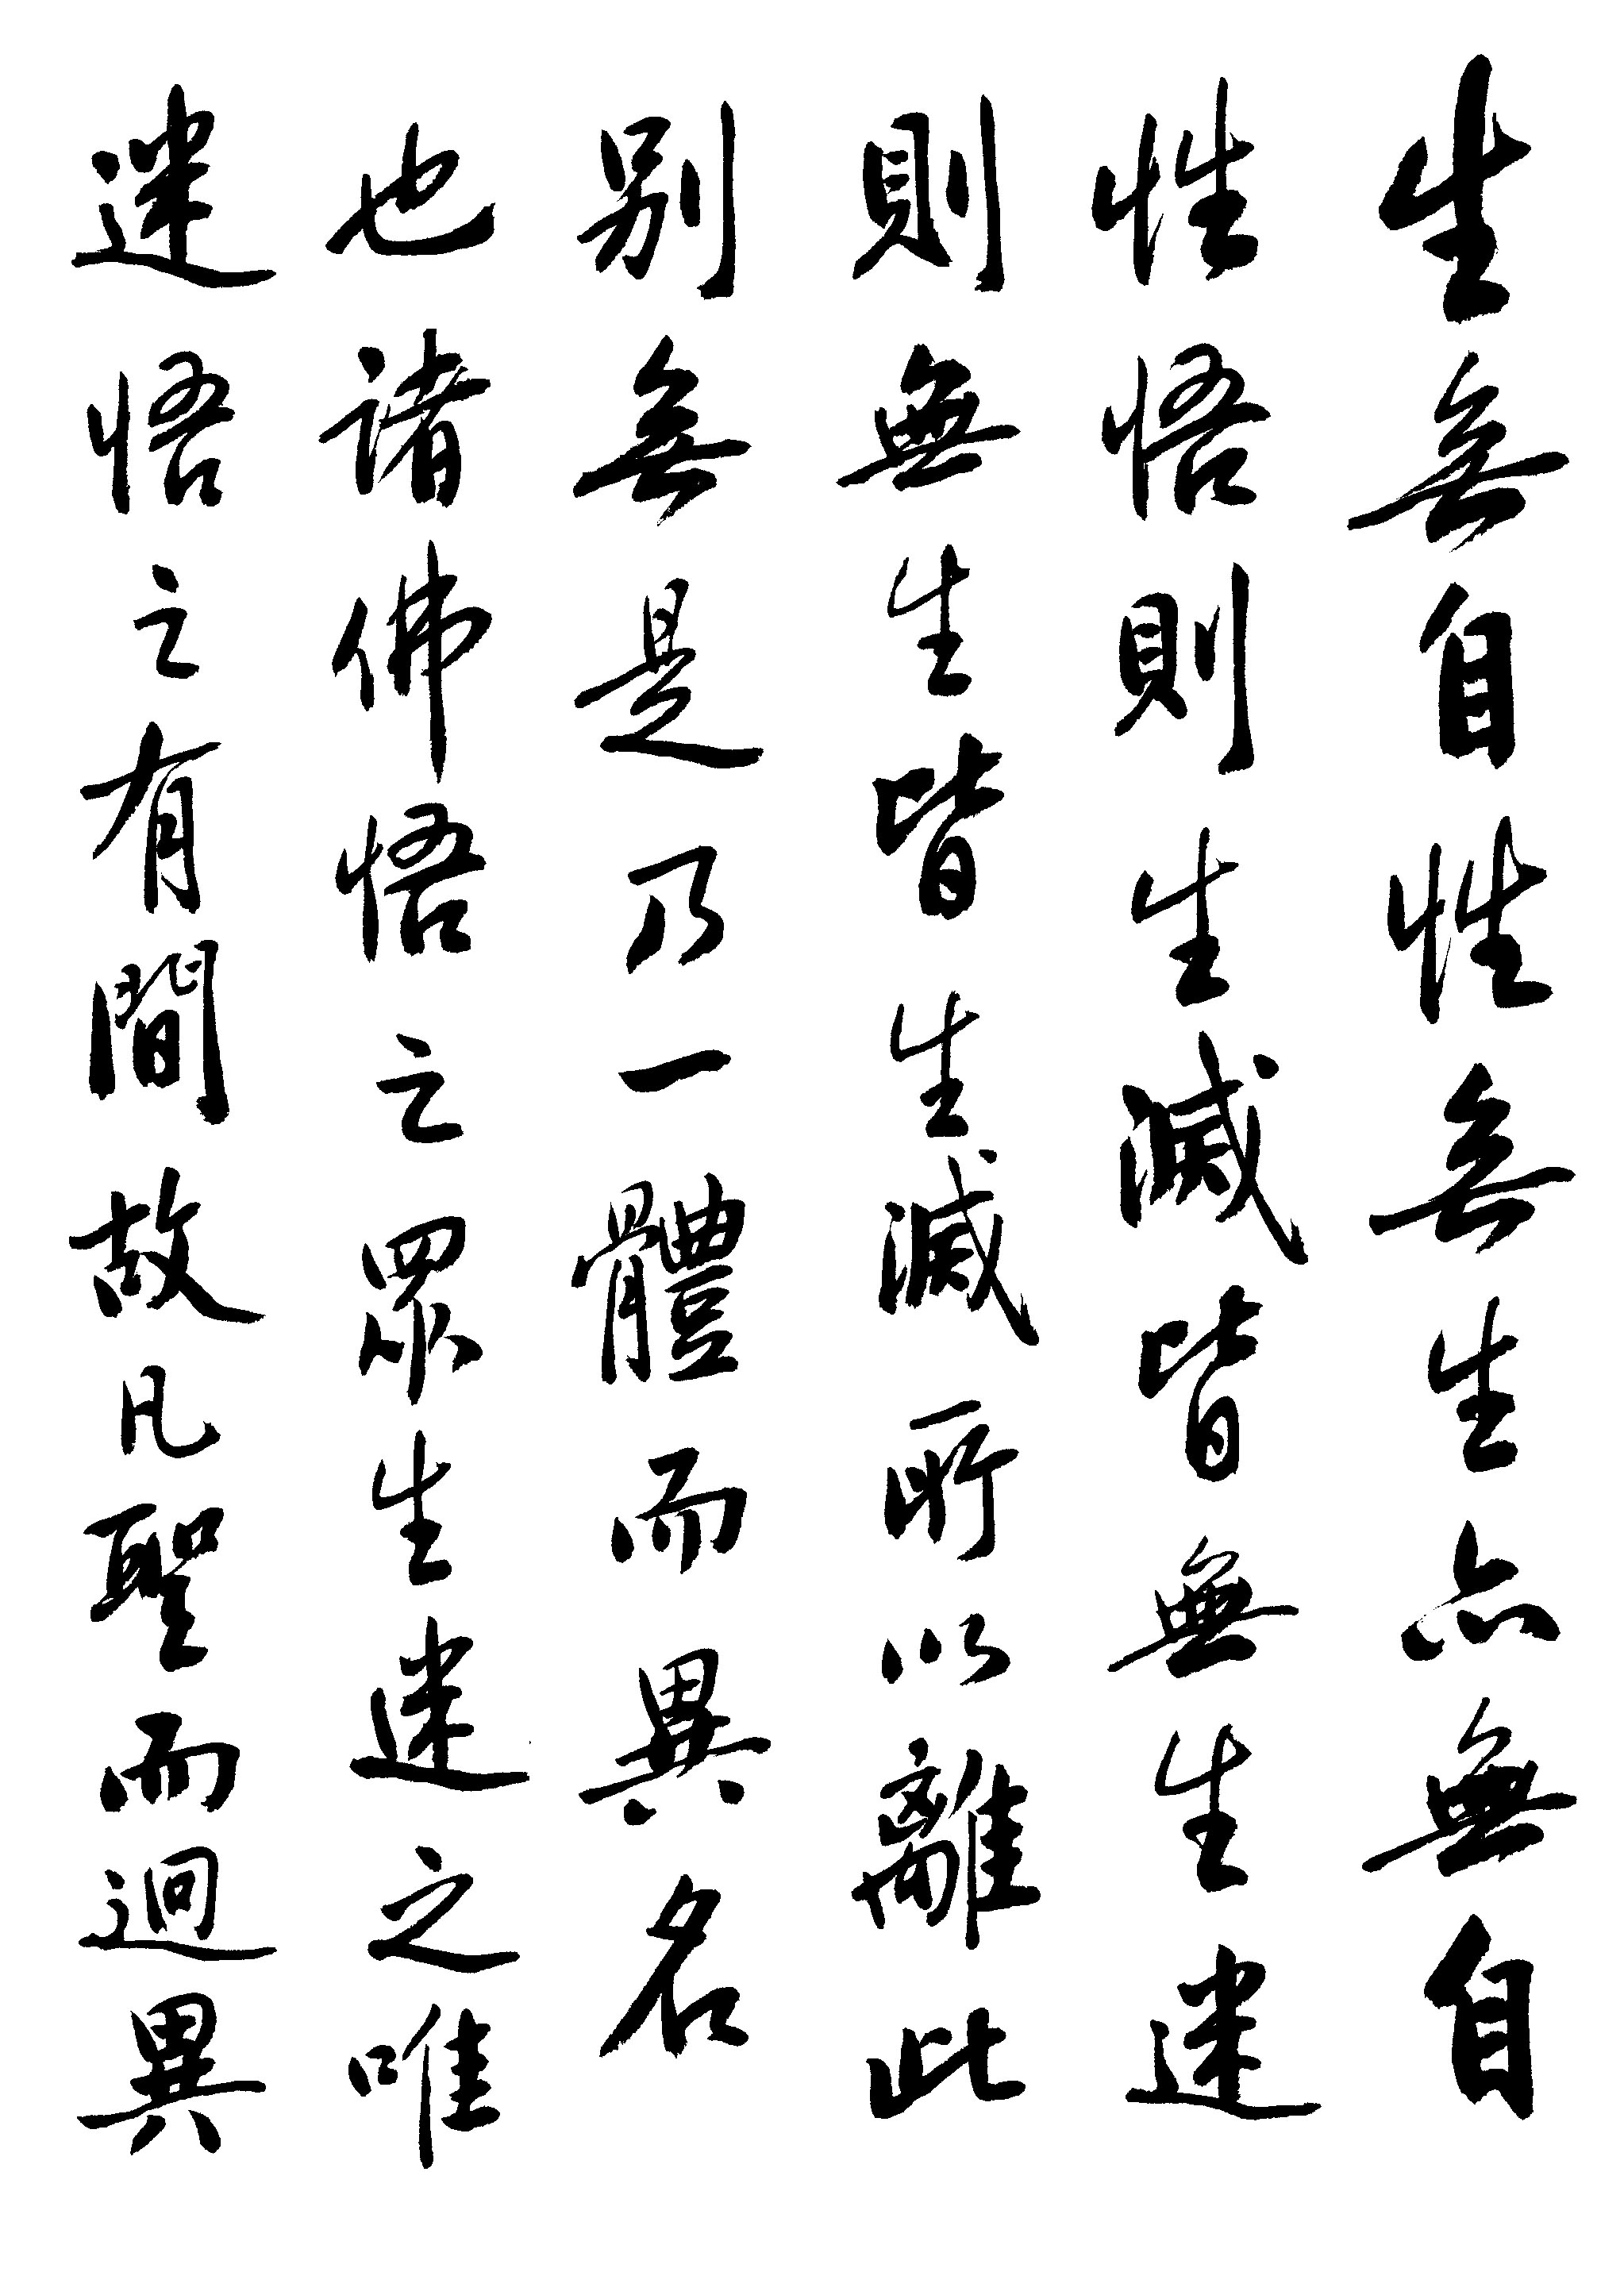 生無自性無生亦無自
性悟則生滅皆無生迷
則無生皆生滅所以離此
別無是乃一體而異名
也諸佛悟之眾生迷之唯
迷悟之有間故凡聖而迥異